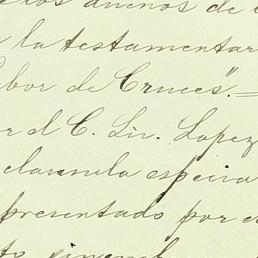 los dueños de
la testamentar
abor de Cruces".—
or el C. Lic. Lopez
clausula especia
presentado por e